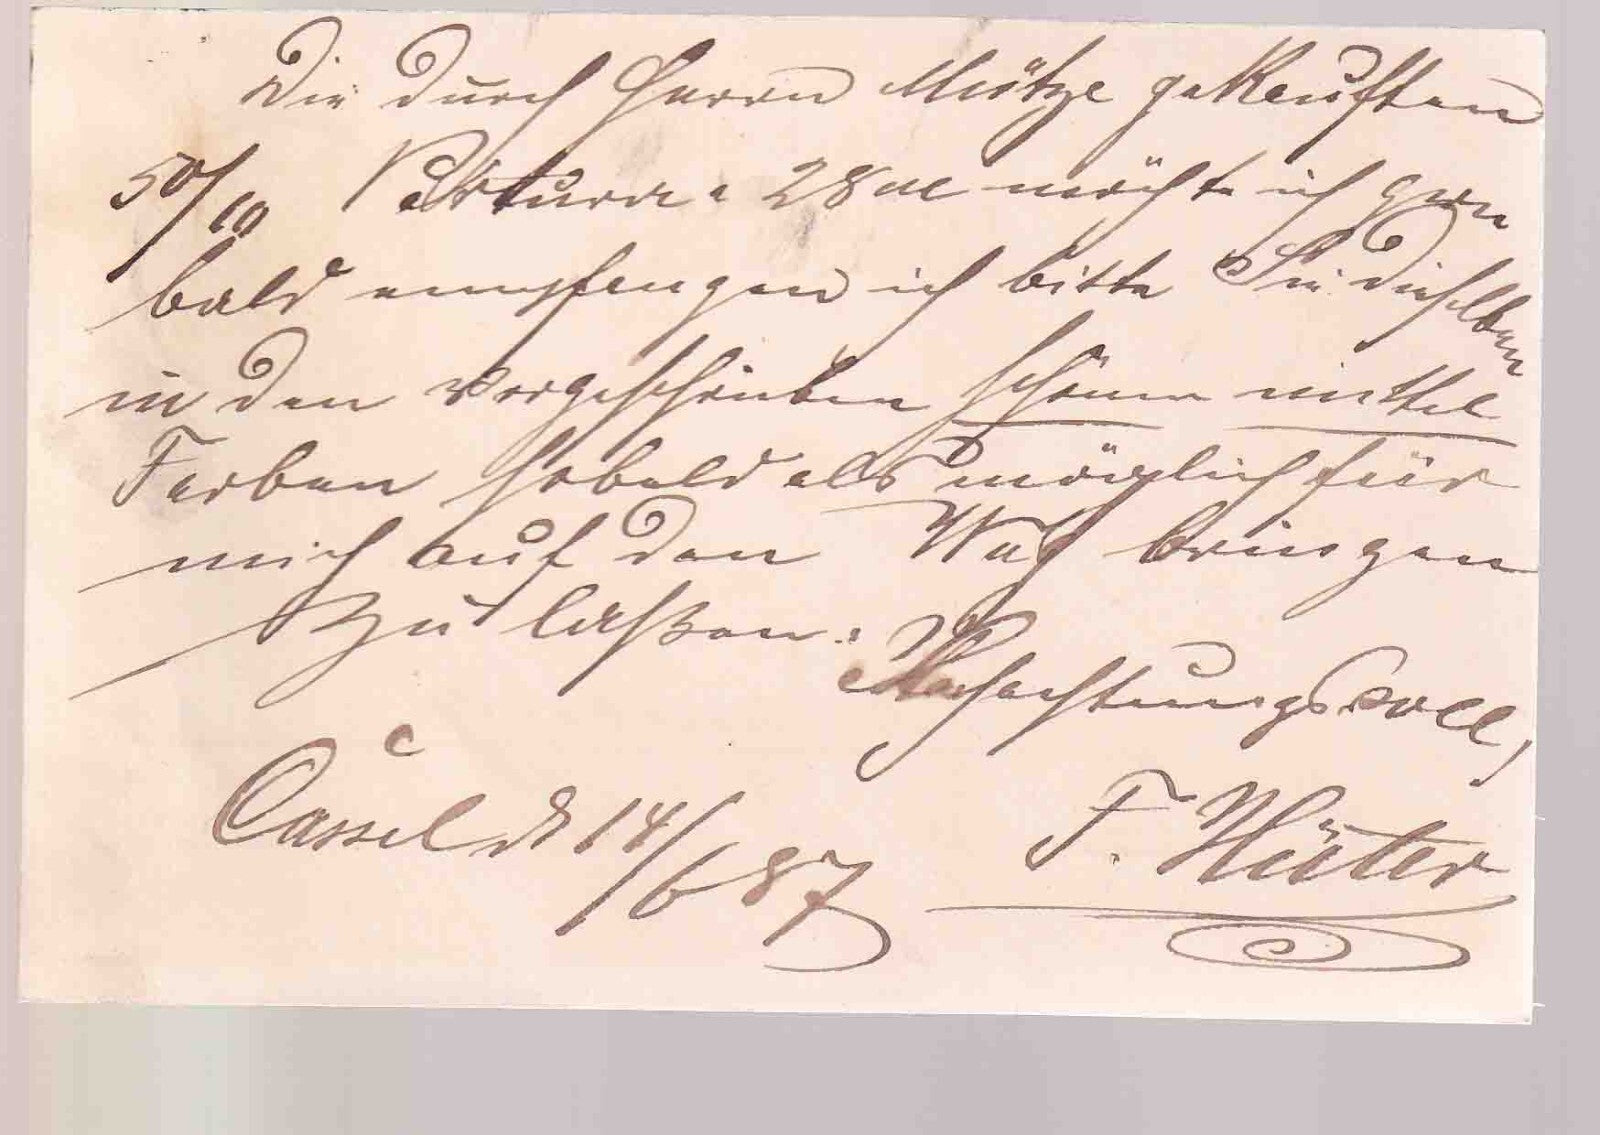 Die durch Herrn Mütze gekauften
50/10 à 28 M möchte ich gern
bald empfangen ich bitte Sie dieselben
in den vorgeschrieben schönen mittel
Farben sobald als möglich für
mich auf den Weg bringen
zu laßen.
Hochachtungsvoll,
Cassel d 14/6 87
F. Hüter